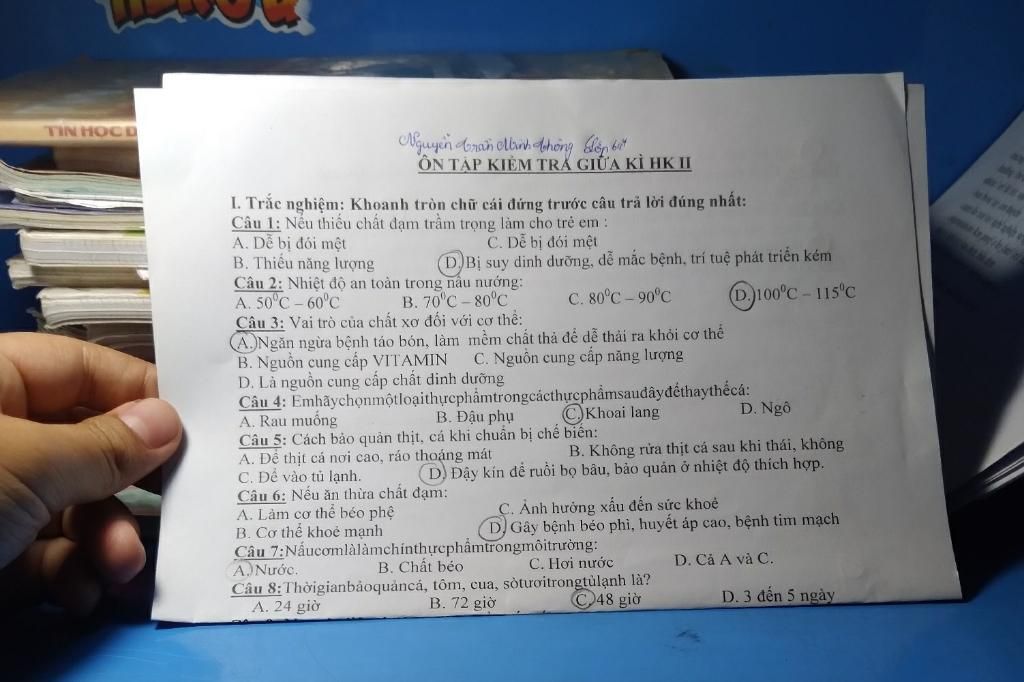 TIN HỌC
Nguyễn Trần Minh Thông Lớp 6
ÔN TẬP KIỂM TRA GIỮA KÌ HK II
I. Trắc nghiệm: Khoanh tròn chữ cái đứng trước câu trả lời đúng nhất:
Câu 1: Nếu thiếu chất đạm trầm trọng làm cho trẻ em :
A. Dễ bị đói mệt C. Dễ bị đói mệt
B. Thiếu năng lượng D. Bị suy dinh dưỡng, dễ mắc bệnh, trí tuệ phát triển kém
Câu 2: Nhiệt độ an toàn trong nấu nướng:
A. 50⁰C – 60⁰C B. 70⁰C – 80⁰C C. 80⁰C – 90⁰C D. 100⁰C – 115⁰C
Câu 3: Vai trò của chất xơ đối với cơ thể:
A. Ngăn ngừa bệnh táo bón, làm mềm chất thả để dễ thải ra khỏi cơ thể
B. Nguồn cung cấp VITAMIN C. Nguồn cung cấp năng lượng
D. Là nguồn cung cấp chất dinh dưỡng
Câu 4: Emhãychọnmộtloạithựcphẩmtrongcácthựcphẩmsauđâyđểthaythếcá:
A. Rau muống B. Đậu phụ C. Khoai lang D. Ngô
Câu 5: Cách bảo quản thịt, cá khi chuẩn bị chế biến:
A. Để thịt cá nơi cao, ráo thoáng mát B. Không rửa thịt cá sau khi thái, không
C. Để vào tủ lạnh. D. Đậy kín để ruồi bọ bâu, bảo quản ở nhiệt độ thích hợp.
Câu 6: Nếu ăn thừa chất đạm:
A. Làm cơ thể béo phệ C. Ảnh hưởng xấu đến sức khoẻ
B. Cơ thể khoẻ mạnh D. Gây bệnh béo phì, huyết áp cao, bệnh tim mạch
Câu 7:Nấucơmlàlàmchínthựcphẩmtrongmôitrường:
A. Nước. B. Chất béo C. Hơi nước D. Cả A và C.
Câu 8:Thờigianbảoquảncá, tôm, cua, sòtươitrongtủlạnh là?
A. 24 giờ B. 72 giờ C. 48 giờ D. 3 đến 5 ngày